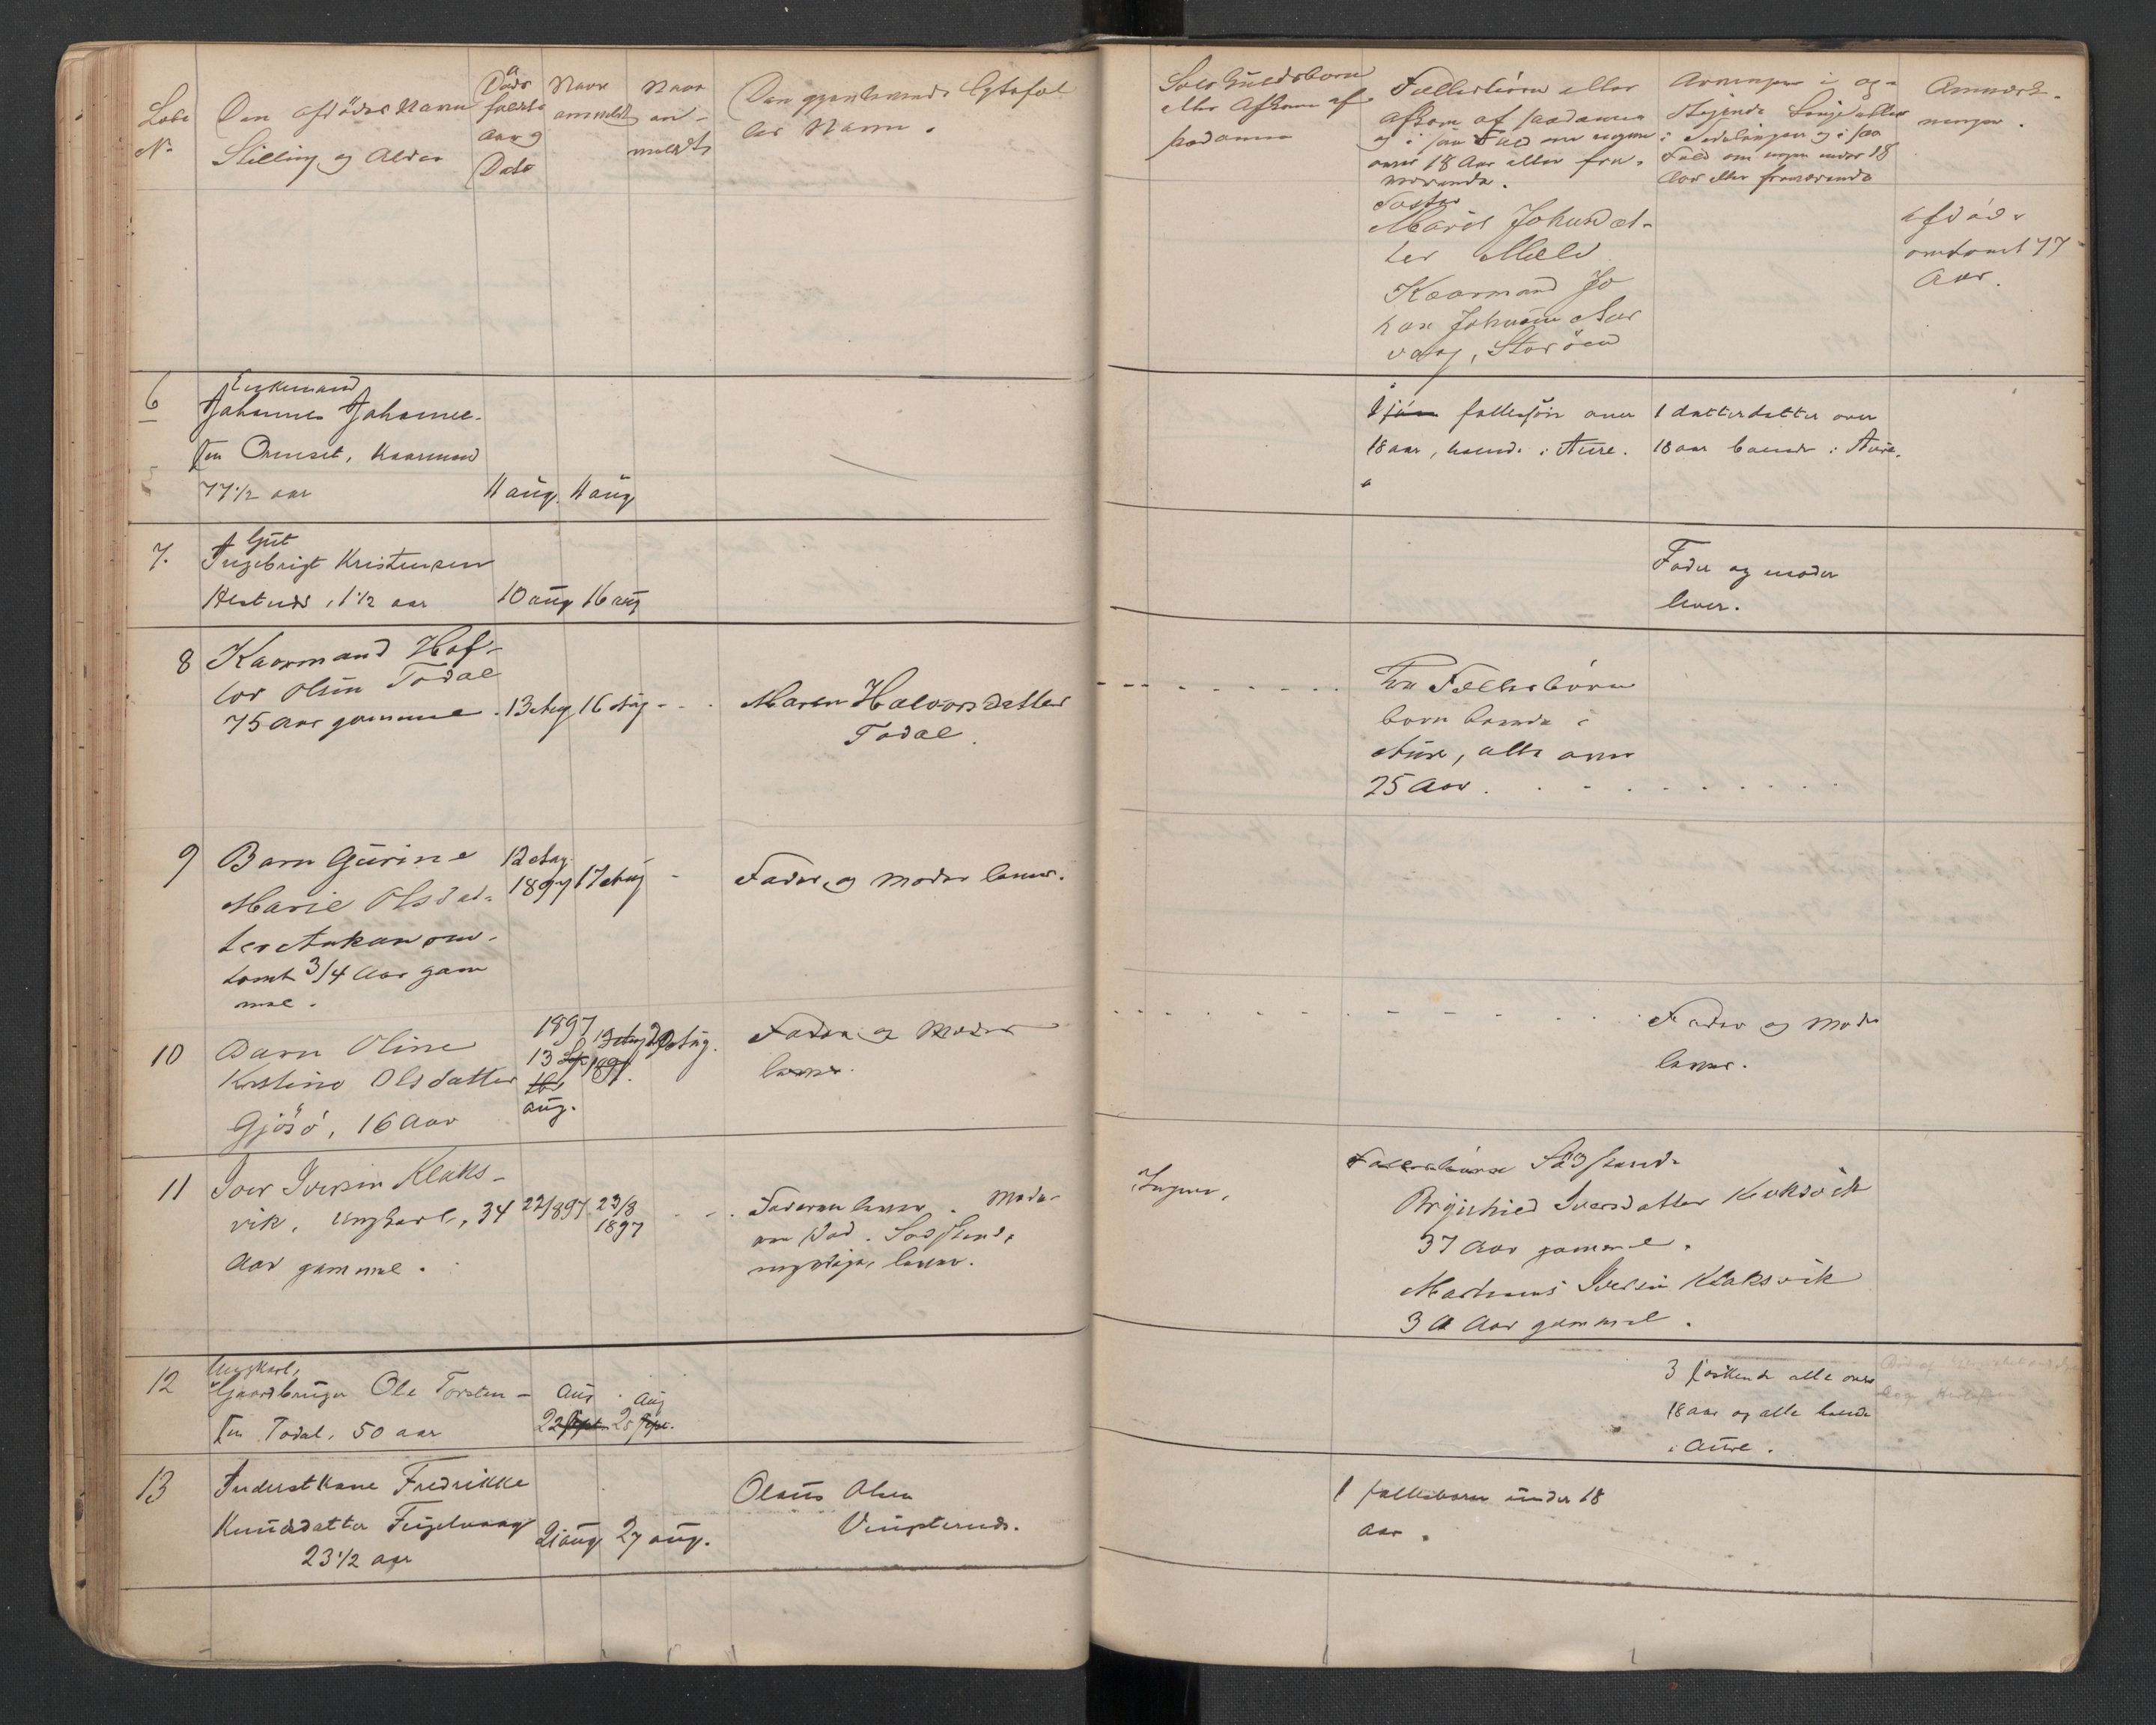 Løbe
No
Den afdødes Navn
Stilling og Alder
Døds
faldets
Aar og
Dato
Naar
anmeldt
Naar
an-
meldt
Den gjenlevende Ægtefæl
les Navn.
6
Enkemand
Johannes Johannes-
sen Omset, Kaarmand
77 1/2 aar
11 aug. 11 aug
7.
Gut
Ingebrigt Kristensen
1 1/2 aar
10 aug 16 aug
8
Kaarmand Hal-
vor Olsen Todal
75 Aar gammel. 13 Aug 16 Aug
Maren Halvorsdatter
Todal.
9
Barn Gurine
Marie Olsdat-
ter Ankan om-
tomt 3/4 Aar gam
mel.
12 Aug
1897 17 Aug
Fader og Moder lever.
10
Barn Oline
Kristine Olsdatter
Gjøsø, 16 Aar
1897
13
aug.
1897.
Aug.
Fader og Moder
lever.
11
Iver Iversen Klaks-
vik, Ungkarl, 34
Aar gammel.
22/8 97 23/8
1897
Faderen lever. Mode-
ren Død. Sødsken
lever.
12
Ungkarl,
Gaardbruger Ole Torsten-
sen Todal, 50 aar
Aug Aug
22 Sept. 25 Sept.
13
Inderstkone Fredrikke
Knudsdatter Fugelvaag
23 1/2 aar
21 aug 27 aug.
Olaus Olsen
Særkuldsbørn
eller Afkom af
saadanne
Fællesbørn eller
Afkom af saadanne
og i saa Fald om nogen
under 18 Aar eller fra-
værende.
Arvinger i op-
stigende Linje eller
i Sidelinjen og i saa
Fald om nogen under 18
Aar eller fraværende
Anmærk-
ninger.
Søster
Marit Johansdat-
ter Mæle
Kaarmand Jo
han Johnsen Aur
vaag, Storøen
Afdøde
omtomt 77
Aar.
1 søn fællessøn over
18 aar, boende i Aure.
1 datterdatter over
18 aar boende i Aure.
Fader og moder
lever.
Fællesbørn
born boende i
Aure, alle over
25 Aar.
Fader og Moder
lever.
Ingen,
Fællesbørn Sødskende
Iversdatter Klaksvik
37 Aar gammel.
Martinus Iversen Klaksvik
Aar gammel.
3 søskende alle over
18 aar og alle boende
i Aure.
1 fællesbarn under 18
aar.